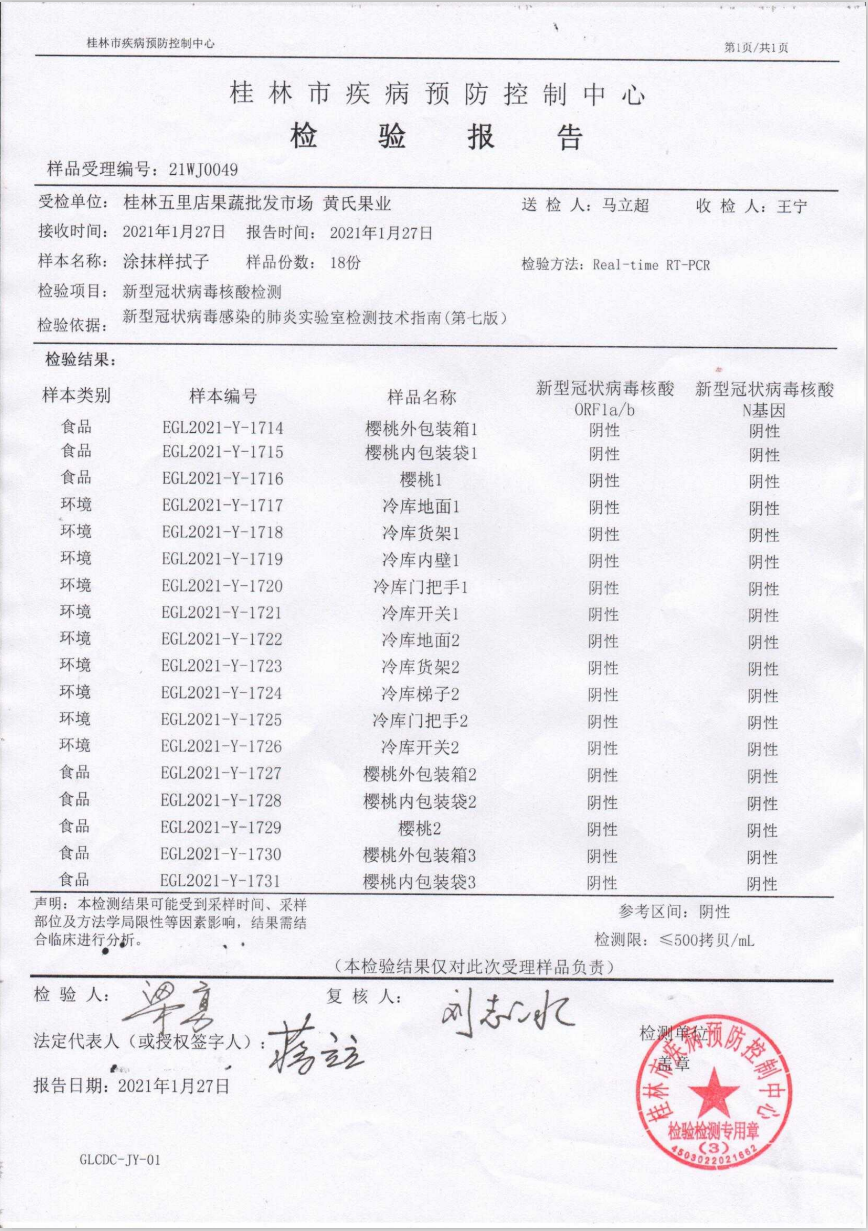 桂林市疾病预防控制中心 第1页/共1页
桂林市疾病预防控制中心
检验报告
样品受理编号：21WJ0049
受检单位：桂林五里店果蔬批发市场 黄氏果业 送检人：马立超 收检人：王宁
接收时间：2021年1月27日 报告时间：2021年1月27日
样本名称：涂抹样拭子 样品份数：18份 检验方法：Real-time RT-PCR
检验项目：新型冠状病毒核酸检测
检验依据：新型冠状病毒感染的肺炎实验室检测技术指南(第七版)
检验结果：
样本类别 样本编号 样品名称 新型冠状病毒核酸 ORF1a/b 新型冠状病毒核酸 N基因
食品 EGL2021-Y-1714 樱桃外包装箱1 阴性 阴性
食品 EGL2021-Y-1715 樱桃内包装袋1 阴性 阴性
食品 EGL2021-Y-1716 樱桃1 阴性 阴性
环境 EGL2021-Y-1717 冷库地面1 阴性 阴性
环境 EGL2021-Y-1718 冷库货架1 阴性 阴性
环境 EGL2021-Y-1719 冷库内壁1 阴性 阴性
环境 EGL2021-Y-1720 冷库门把手1 阴性 阴性
环境 EGL2021-Y-1721 冷库开关1 阴性 阴性
环境 EGL2021-Y-1722 冷库地面2 阴性 阴性
环境 EGL2021-Y-1723 冷库货架2 阴性 阴性
环境 EGL2021-Y-1724 冷库梯子2 阴性 阴性
环境 EGL2021-Y-1725 冷库门把手2 阴性 阴性
环境 EGL2021-Y-1726 冷库开关2 阴性 阴性
食品 EGL2021-Y-1727 樱桃外包装箱2 阴性 阴性
食品 EGL2021-Y-1728 樱桃内包装袋2 阴性 阴性
食品 EGL2021-Y-1729 樱桃2 阴性 阴性
食品 EGL2021-Y-1730 樱桃外包装箱3 阴性 阴性
食品 EGL2021-Y-1731 樱桃内包装袋3 阴性 阴性
声明：本检测结果可能受到采样时间、采样
部位及方法学局限性等因素影响，结果需结
合临床进行分析。
参考区间：阴性
检测限：≤500拷贝/mL
（本检验结果仅对此次受理样品负责）
检验人： 复核人：
法定代表人（或授权签字人）：
检测单位
盖章
报告日期：2021年1月27日
桂林市疾病预防控制中心
检验检测专用章
(3)
4503022021662
GLCDC-JY-01